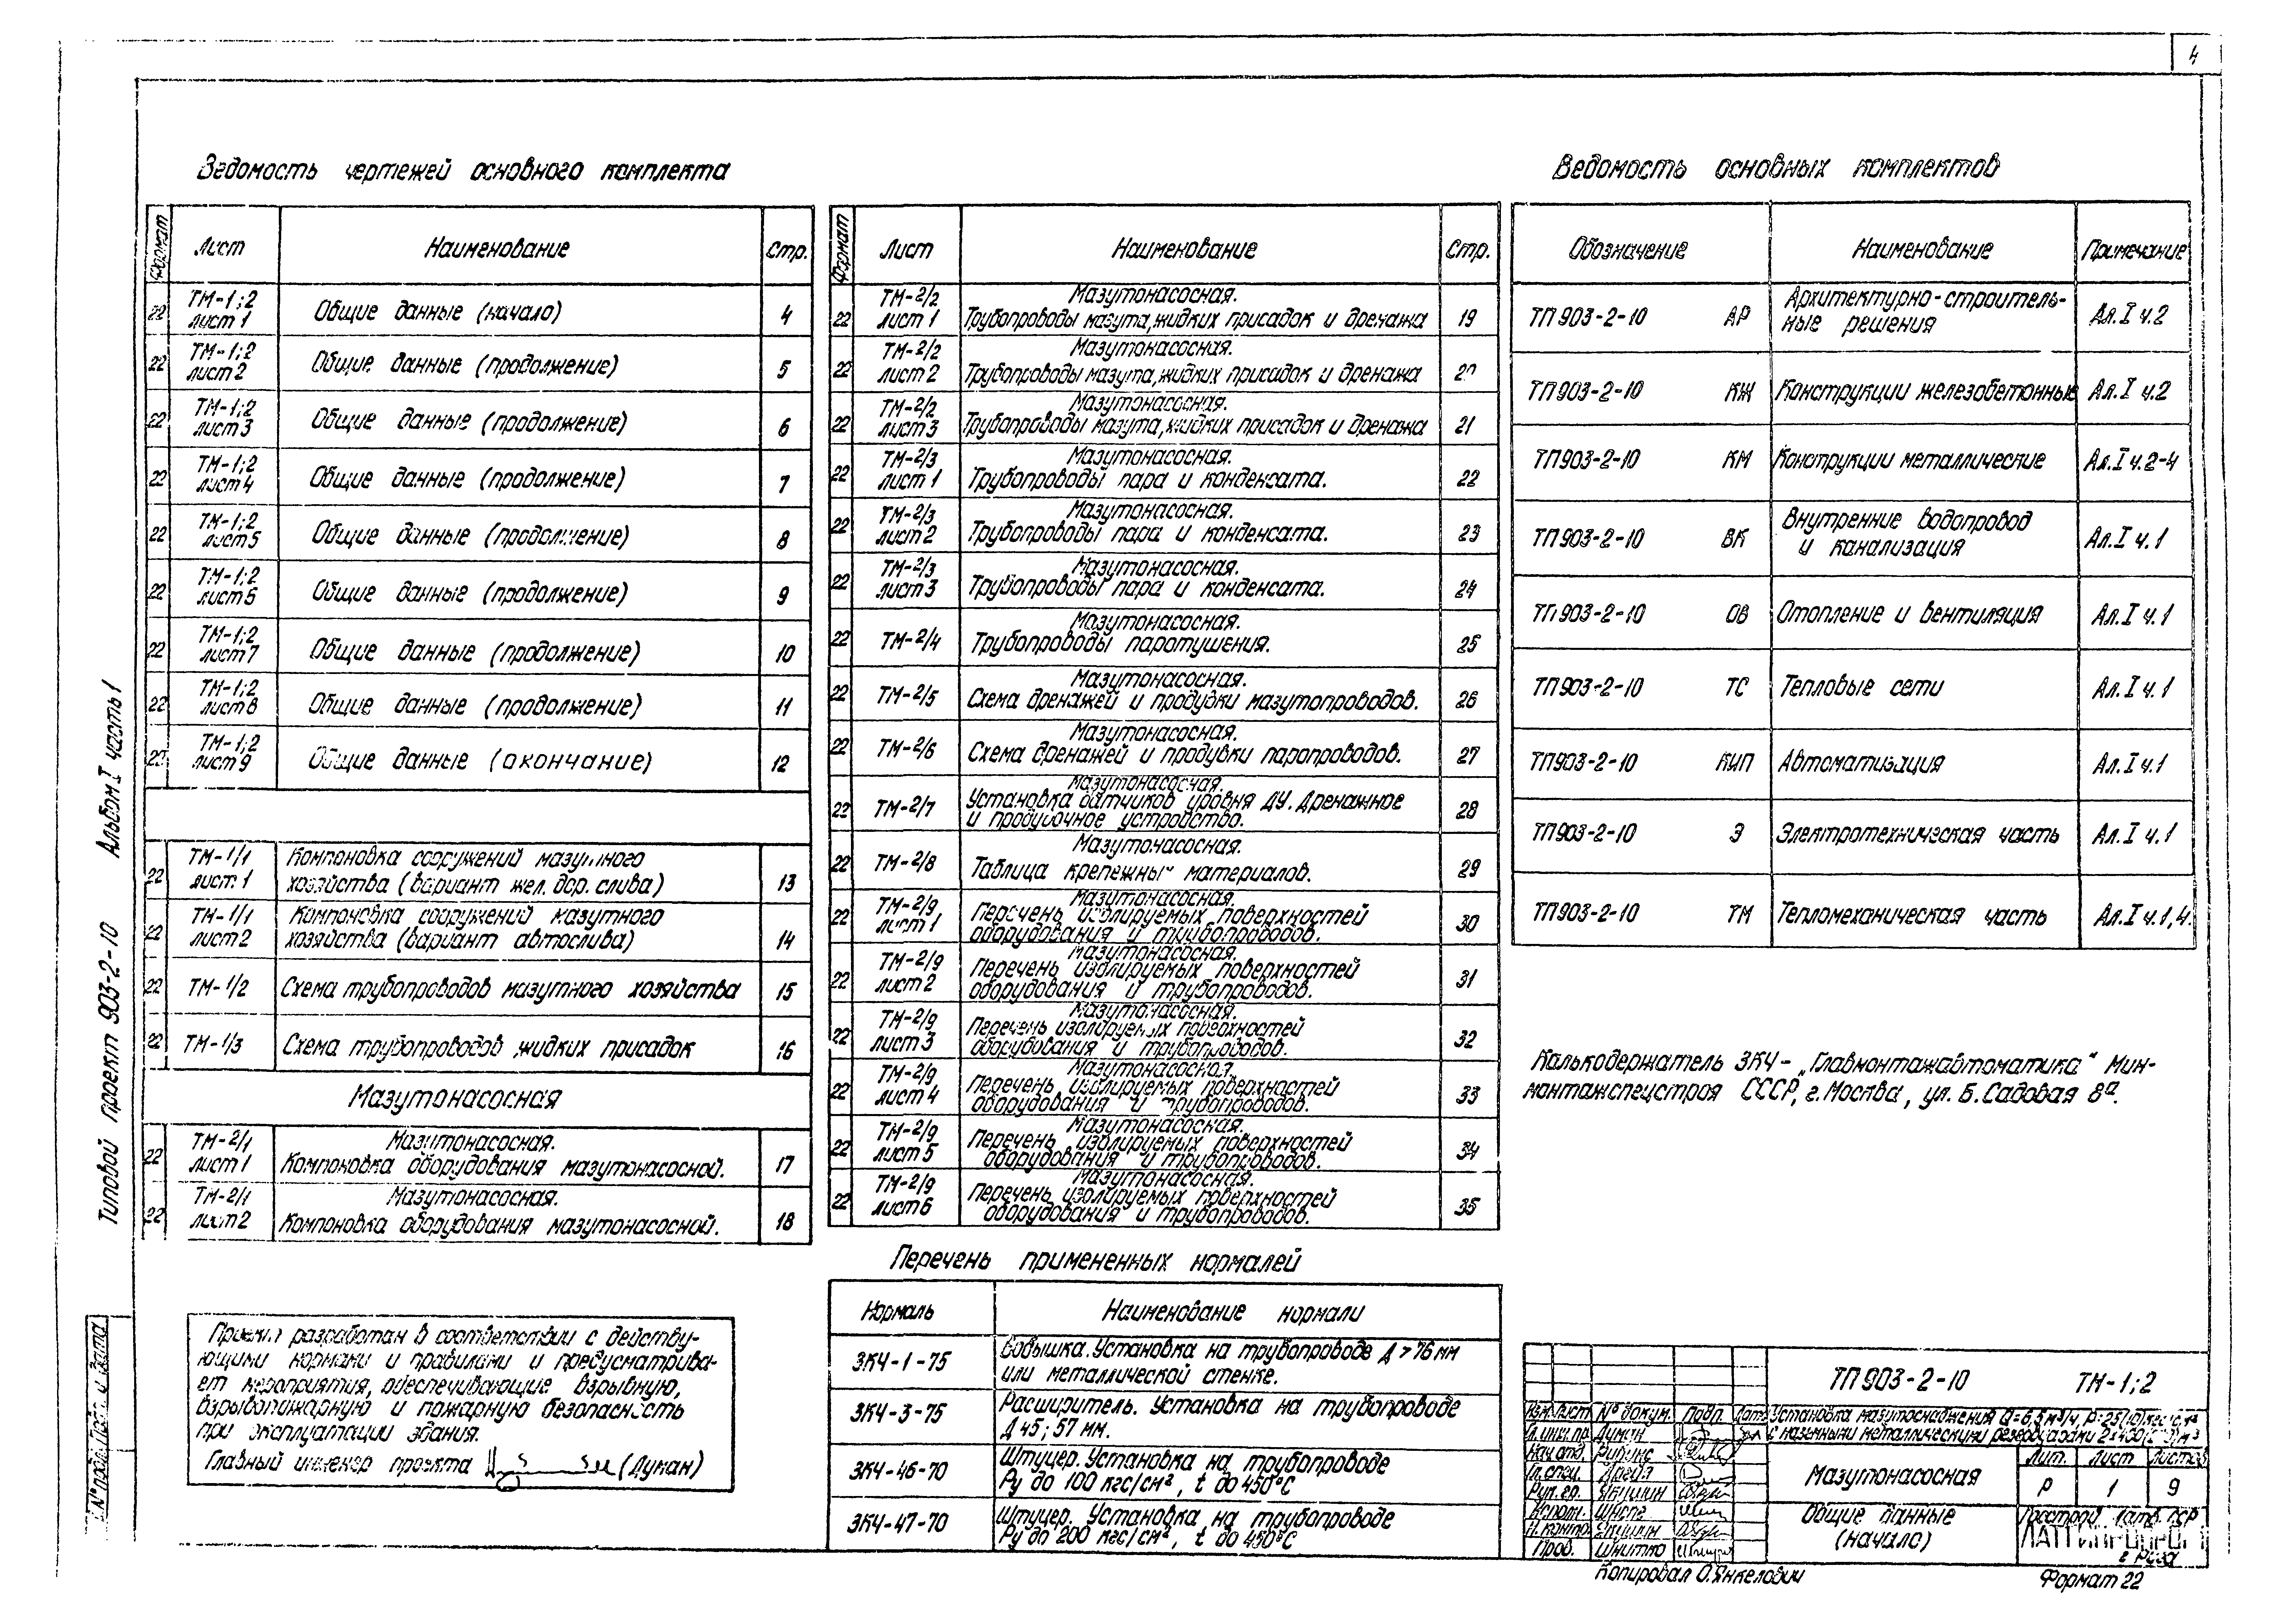 4
Ведомость чертежей основного комплекта
Формат Лист Наименование Стр.
22 ТМ-1;2 лист 1 Общие данные (начало) 4
22 ТМ-1;2 лист 2 Общие данные (продолжение) 5
22 ТМ-1;2 лист 3 Общие данные (продолжение) 6
22 ТМ-1;2 лист 4 Общие данные (продолжение) 7
22 ТМ-1;2 лист 5 Общие данные (продолжение) 8
22 ТМ-1;2 лист 6 Общие данные (продолжение) 9
22 ТМ-1;2 лист 7 Общие данные (продолжение) 10
22 ТМ-1;2 лист 8 Общие данные (продолжение) 11
22 ТМ-1;2 лист 9 Общие данные (окончание) 12
22 ТМ-1/1 лист 1 Компоновка сооружений мазутного
хозяйства (вариант жел. дор. слива) 13
22 ТМ-1/1 лист 2 Компоновка сооружений мазутного
хозяйства (вариант автослива) 14
22 ТМ-1/2 Схема трубопроводов мазутного хозяйства 15
22 ТМ-1/3 Схема трубопроводов жидких присадок 16
Мазутонасосная
22 ТМ-2/1 лист 1 Мазутонасосная.
Компоновка оборудования мазутонасосной. 17
22 ТМ-2/1 лист 2 Мазутонасосная.
Компоновка оборудования мазутонасосной. 18
Формат Лист Наименование Стр.
22 ТМ-2/2 лист 1 Мазутонасосная.
Трубопроводы мазута, жидких присадок и дренажа 19
22 ТМ-2/2 лист 2 Мазутонасосная.
Трубопроводы мазута, жидких присадок и дренажа 20
22 ТМ-2/2 лист 3 Мазутонасосная.
Трубопроводы мазута, жидких присадок и дренажа 21
22 ТМ-2/3 лист 1 Мазутонасосная.
Трубопроводы пара и конденсата. 22
22 ТМ-2/3 лист 2 Мазутонасосная.
Трубопроводы пара и конденсата. 23
22 ТМ-2/3 лист 3 Мазутонасосная.
Трубопроводы пара и конденсата. 24
22 ТМ-2/4 Мазутонасосная.
Трубопроводы паротушения. 25
22 ТМ-2/5 Мазутонасосная.
Схема дренажей и продувки мазутопроводов. 26
22 ТМ-2/6 Мазутонасосная.
Схема дренажей и продувки паропроводов. 27
22 ТМ-2/7 Мазутонасосная.
Установка датчиков уровня ДУ. Дренажное
и продувочное устройство. 28
22 ТМ-2/8 Мазутонасосная.
Таблица крепежных материалов. 29
22 ТМ-2/9 лист 1 Мазутонасосная.
Перечень изолируемых поверхностей
оборудования и трубопроводов. 30
22 ТМ-2/9 лист 2 Мазутонасосная.
Перечень изолируемых поверхностей
оборудования и трубопроводов. 31
22 ТМ-2/9 лист 3 Мазутонасосная.
Перечень изолируемых поверхностей
оборудования и трубопроводов. 32
22 ТМ-2/9 лист 4 Мазутонасосная.
Перечень изолируемых поверхностей
оборудования и трубопроводов. 33
22 ТМ-2/9 лист 5 Мазутонасосная.
Перечень изолируемых поверхностей
оборудования и трубопроводов. 34
22 ТМ-2/9 лист 6 Мазутонасосная.
Перечень изолируемых поверхностей
оборудования и трубопроводов. 35
Ведомость основных комплектов
Обозначение Наименование Примечание
ТП 903-2-10 АР Архитектурно-строитель-
ные решения Ал. I ч.2
ТП 903-2-10 КЖ Конструкции железобетонные Ал. I ч.2
ТП 903-2-10 КМ Конструкции металлические Ал. I ч.2-4
ТП 903-2-10 ВК Внутренние водопровод
и канализация Ал. I ч.1
ТП 903-2-10 ОВ Отопление и вентиляция Ал. I ч.1
ТП 903-2-10 ТС Тепловые сети Ал. I ч.1
ТП 903-2-10 КИП Автоматизация Ал. I ч.1
ТП 903-2-10 Э Электротехническая часть Ал. I ч.1
ТП 903-2-10 ТМ Тепломеханическая часть Ал. I ч.1,4.
Калькодержатель ЗКЧ - „Главмонтажавтоматика" Мин-
монтажспецстроя СССР, г. Москва, ул. Б. Садовая 8а.
Перечень примененных нормалей
Нормаль Наименование нормали
ЗКЧ-1-75 Бобышка. Установка на трубопроводе Д > 76 мм
или металлической стенке.
ЗКЧ-3-75 Расширитель. Установка на трубопроводе
Д 45; 57 мм.
ЗКЧ-46-70 Штуцер. Установка на трубопроводе
Ру до 100 кгс/см², t до 450°С
ЗКЧ-47-70 Штуцер. Установка на трубопроводе
Ру до 200 кгс/см², t до 450°С
Проект разработан в соответствии с действу-
ющими нормами и правилами и предусматрива-
ет мероприятия, обеспечивающие взрывную,
взрывопожарную и пожарную безопасность
при эксплуатации здания.
Главный инженер проекта (Дукан)
Типовой проект 903-2-10 Альбом I часть 1
Подп. и дата
ТП 903-2-10 ТМ-1;2
Изм Лист № докум. Подп. Дата
Установка мазутоснабжения
с наземными металлическими резервуарами
Гл. инж. пр. Дукан
Нач. отд.
Гл. спец.
Рук. гр.
Исполн.
Н. контр.
Пров. Шнитко
Мазутонасосная
Лит. Лист Листов
Р 1 9
Общие данные
(начало)
Госстрой Латв. ССР
ЛАТГИПРОПРОМ
г. Рига
Копировал О. Янкелович
Формат 22